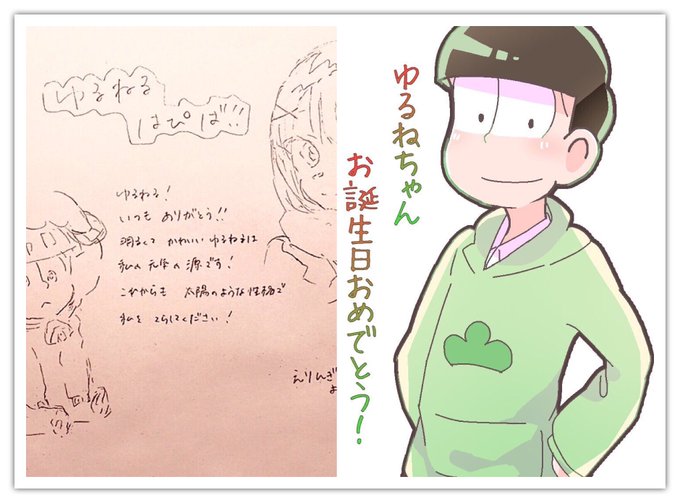 ゆるねる
はぴば!!
ゆるねる!
いつも ありがとう!!
明るくて かわいい ゆるねるは
私の元気の源です!
これからも 太陽のような性格で
私を てらしてください!
えりんぎ
よ
ゆるねちゃん
お誕生日おめでとう!